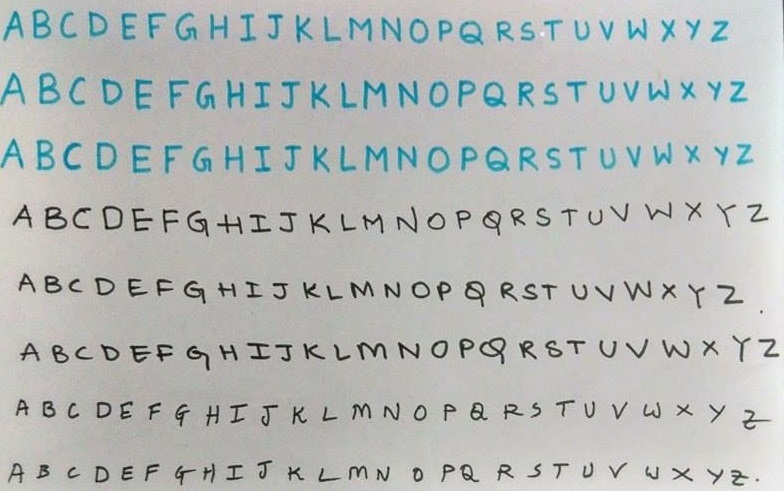 A B C D E F G H I J K L M N O P Q R S T U V W X Y Z
A B C D E F G H I J K L M N O P Q R S T U V W X Y Z
A B C D E F G H I J K L M N O P Q R S T U V W X Y Z
A B C D E F G H I J K L M N O P Q R S T U V W X Y Z
A B C D E F G H I J K L M N O P Q R S T U V W X Y Z .
A B C D E F G H I J K L M N O P Q R S T U V W X Y Z
A B C D E F G H I J K L M N O P Q R S T U V W X Y Z
A B C D E F G H I J K L M N O P Q R S T U V W X Y Z .